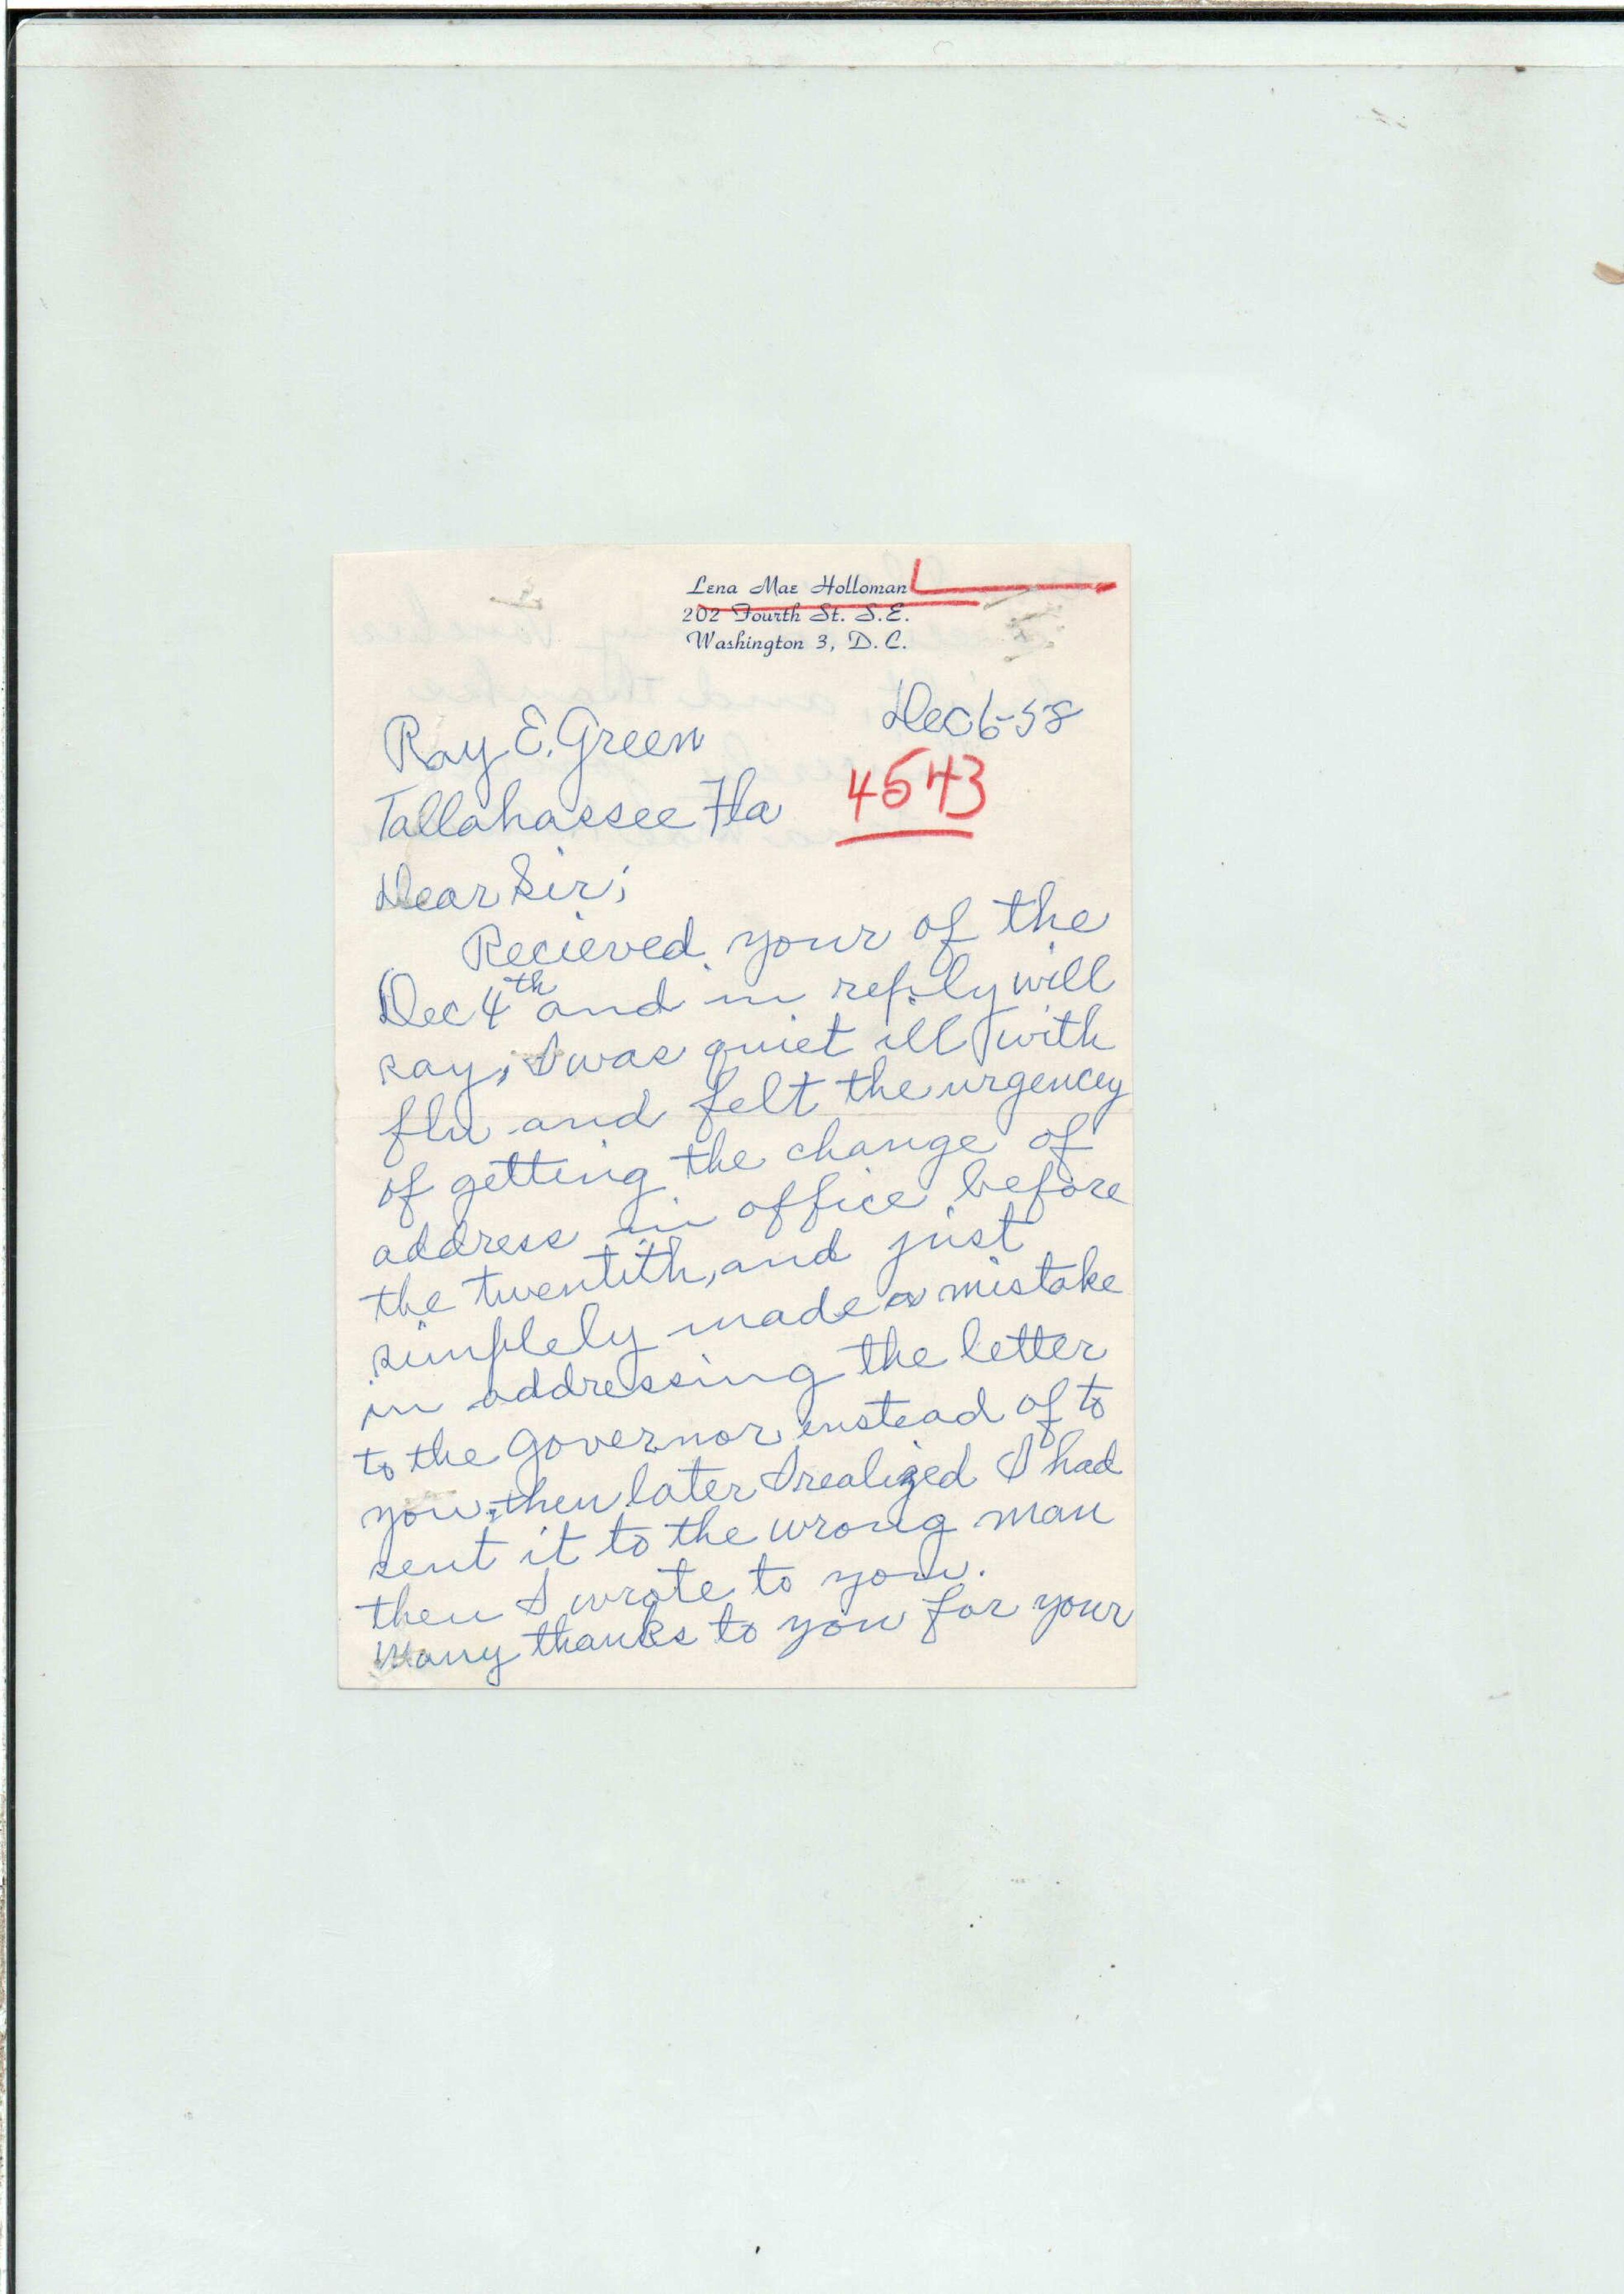 Lena Mae Holloman
202 Fourth St. S.E.
Washington 3, D.C.
Dec 6-58
Ray E. Green
4543
Tallahassee Fla
Dear Sir;
Recieved your of the
Dec 4th and in reply will
say, I was quiet ill with
flu and felt the urgencey
of getting the change of
address in office before
the twentith, and just
simplely made a mistake
in addressing the letter
to the governor instead of to
you, then later I realized I had
sent it to the wrong man
then I wrote to you.
Many thanks to you for your